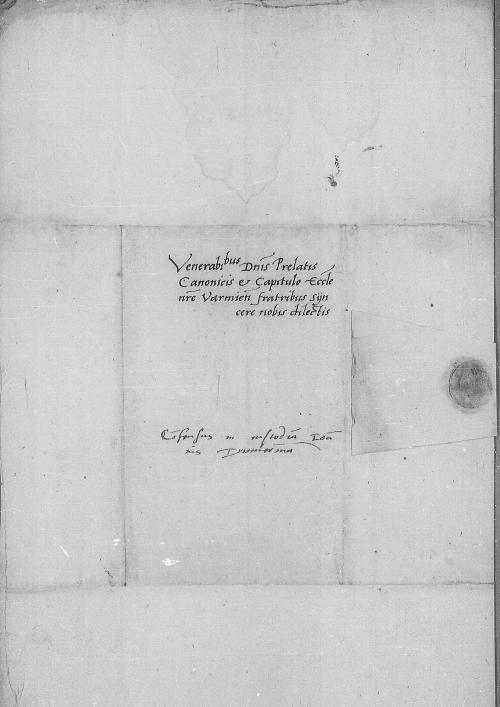 Venerabibus Dnis Prelatis
Canonicis & Capitulo Eccle
nrē Varmien fratribus syn
cere nobis dilectis
Cōsensus in custodiā Ioā
nis